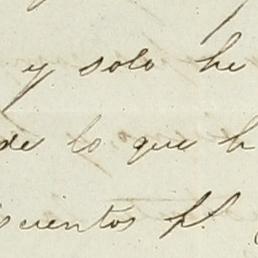 y solo he
de lo que h
scientos p.^s